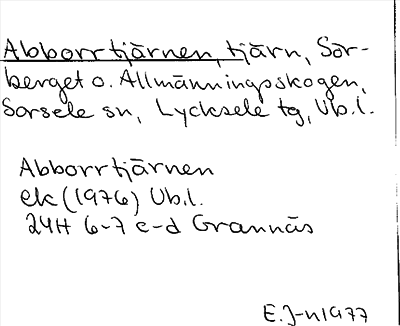 Abborrtjärnen, tjärn, Sör-
berget o. Allmänningsskogen,
Sorsele sn, Lycksele tg, Vb.l.
Abborrtjärnen
ek (1976) Vb.l.
24H 6-7 c-d Grannäs
E.J-n 1977